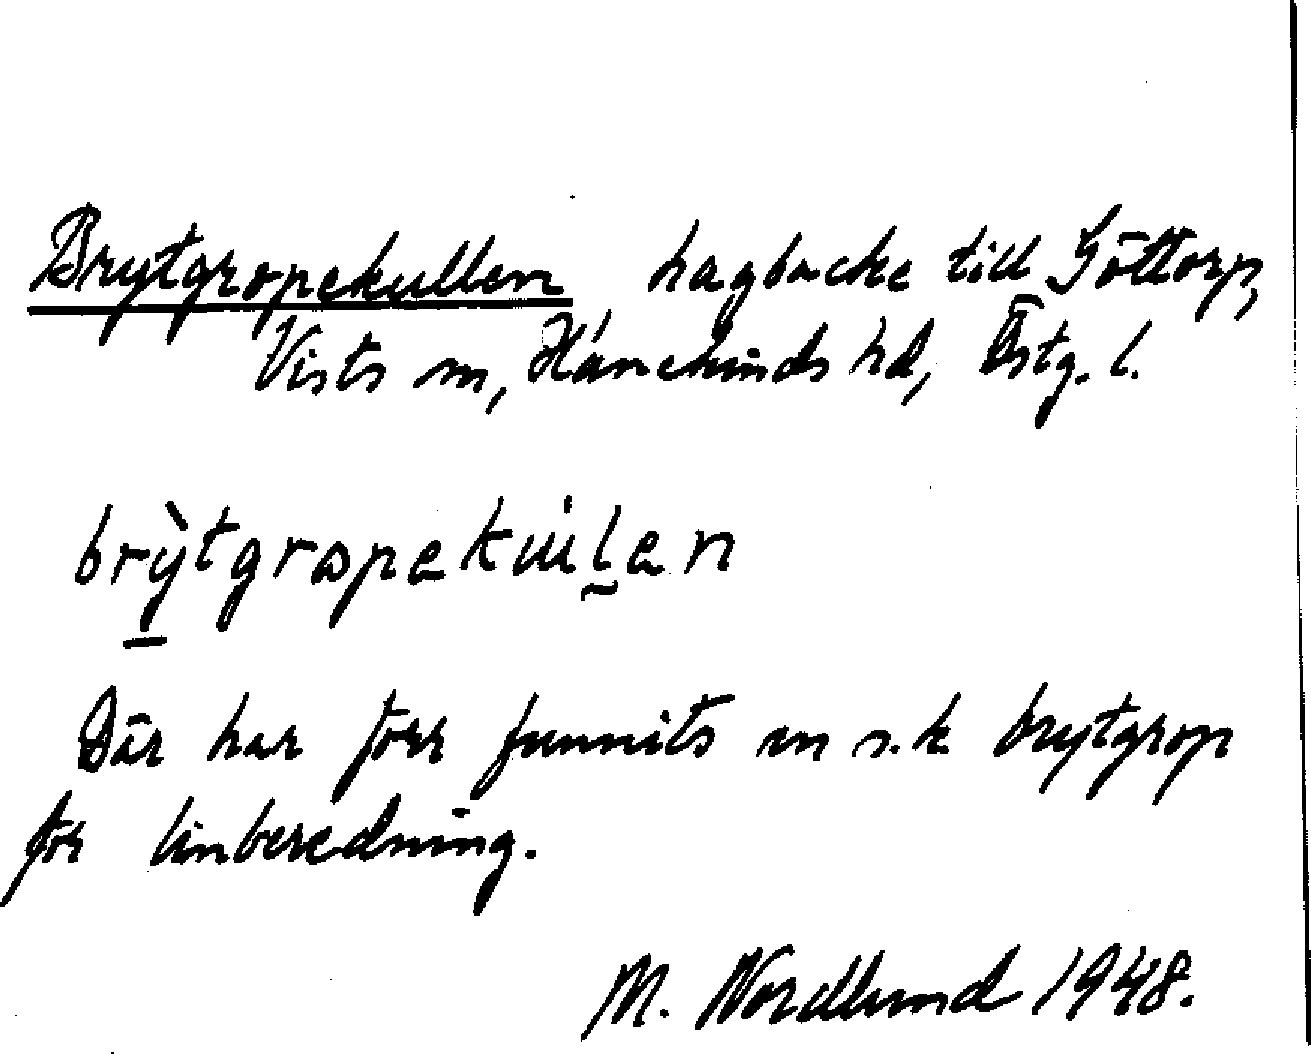 Brytgropekullen, hagbacke till Göttorp,
Vists sn, Hanekinds hd, Östg. l.
brỳtgropekuḷen
Där har förr funnits en s.k brytgrop
för linberedning.
M. Nordlund 1948.